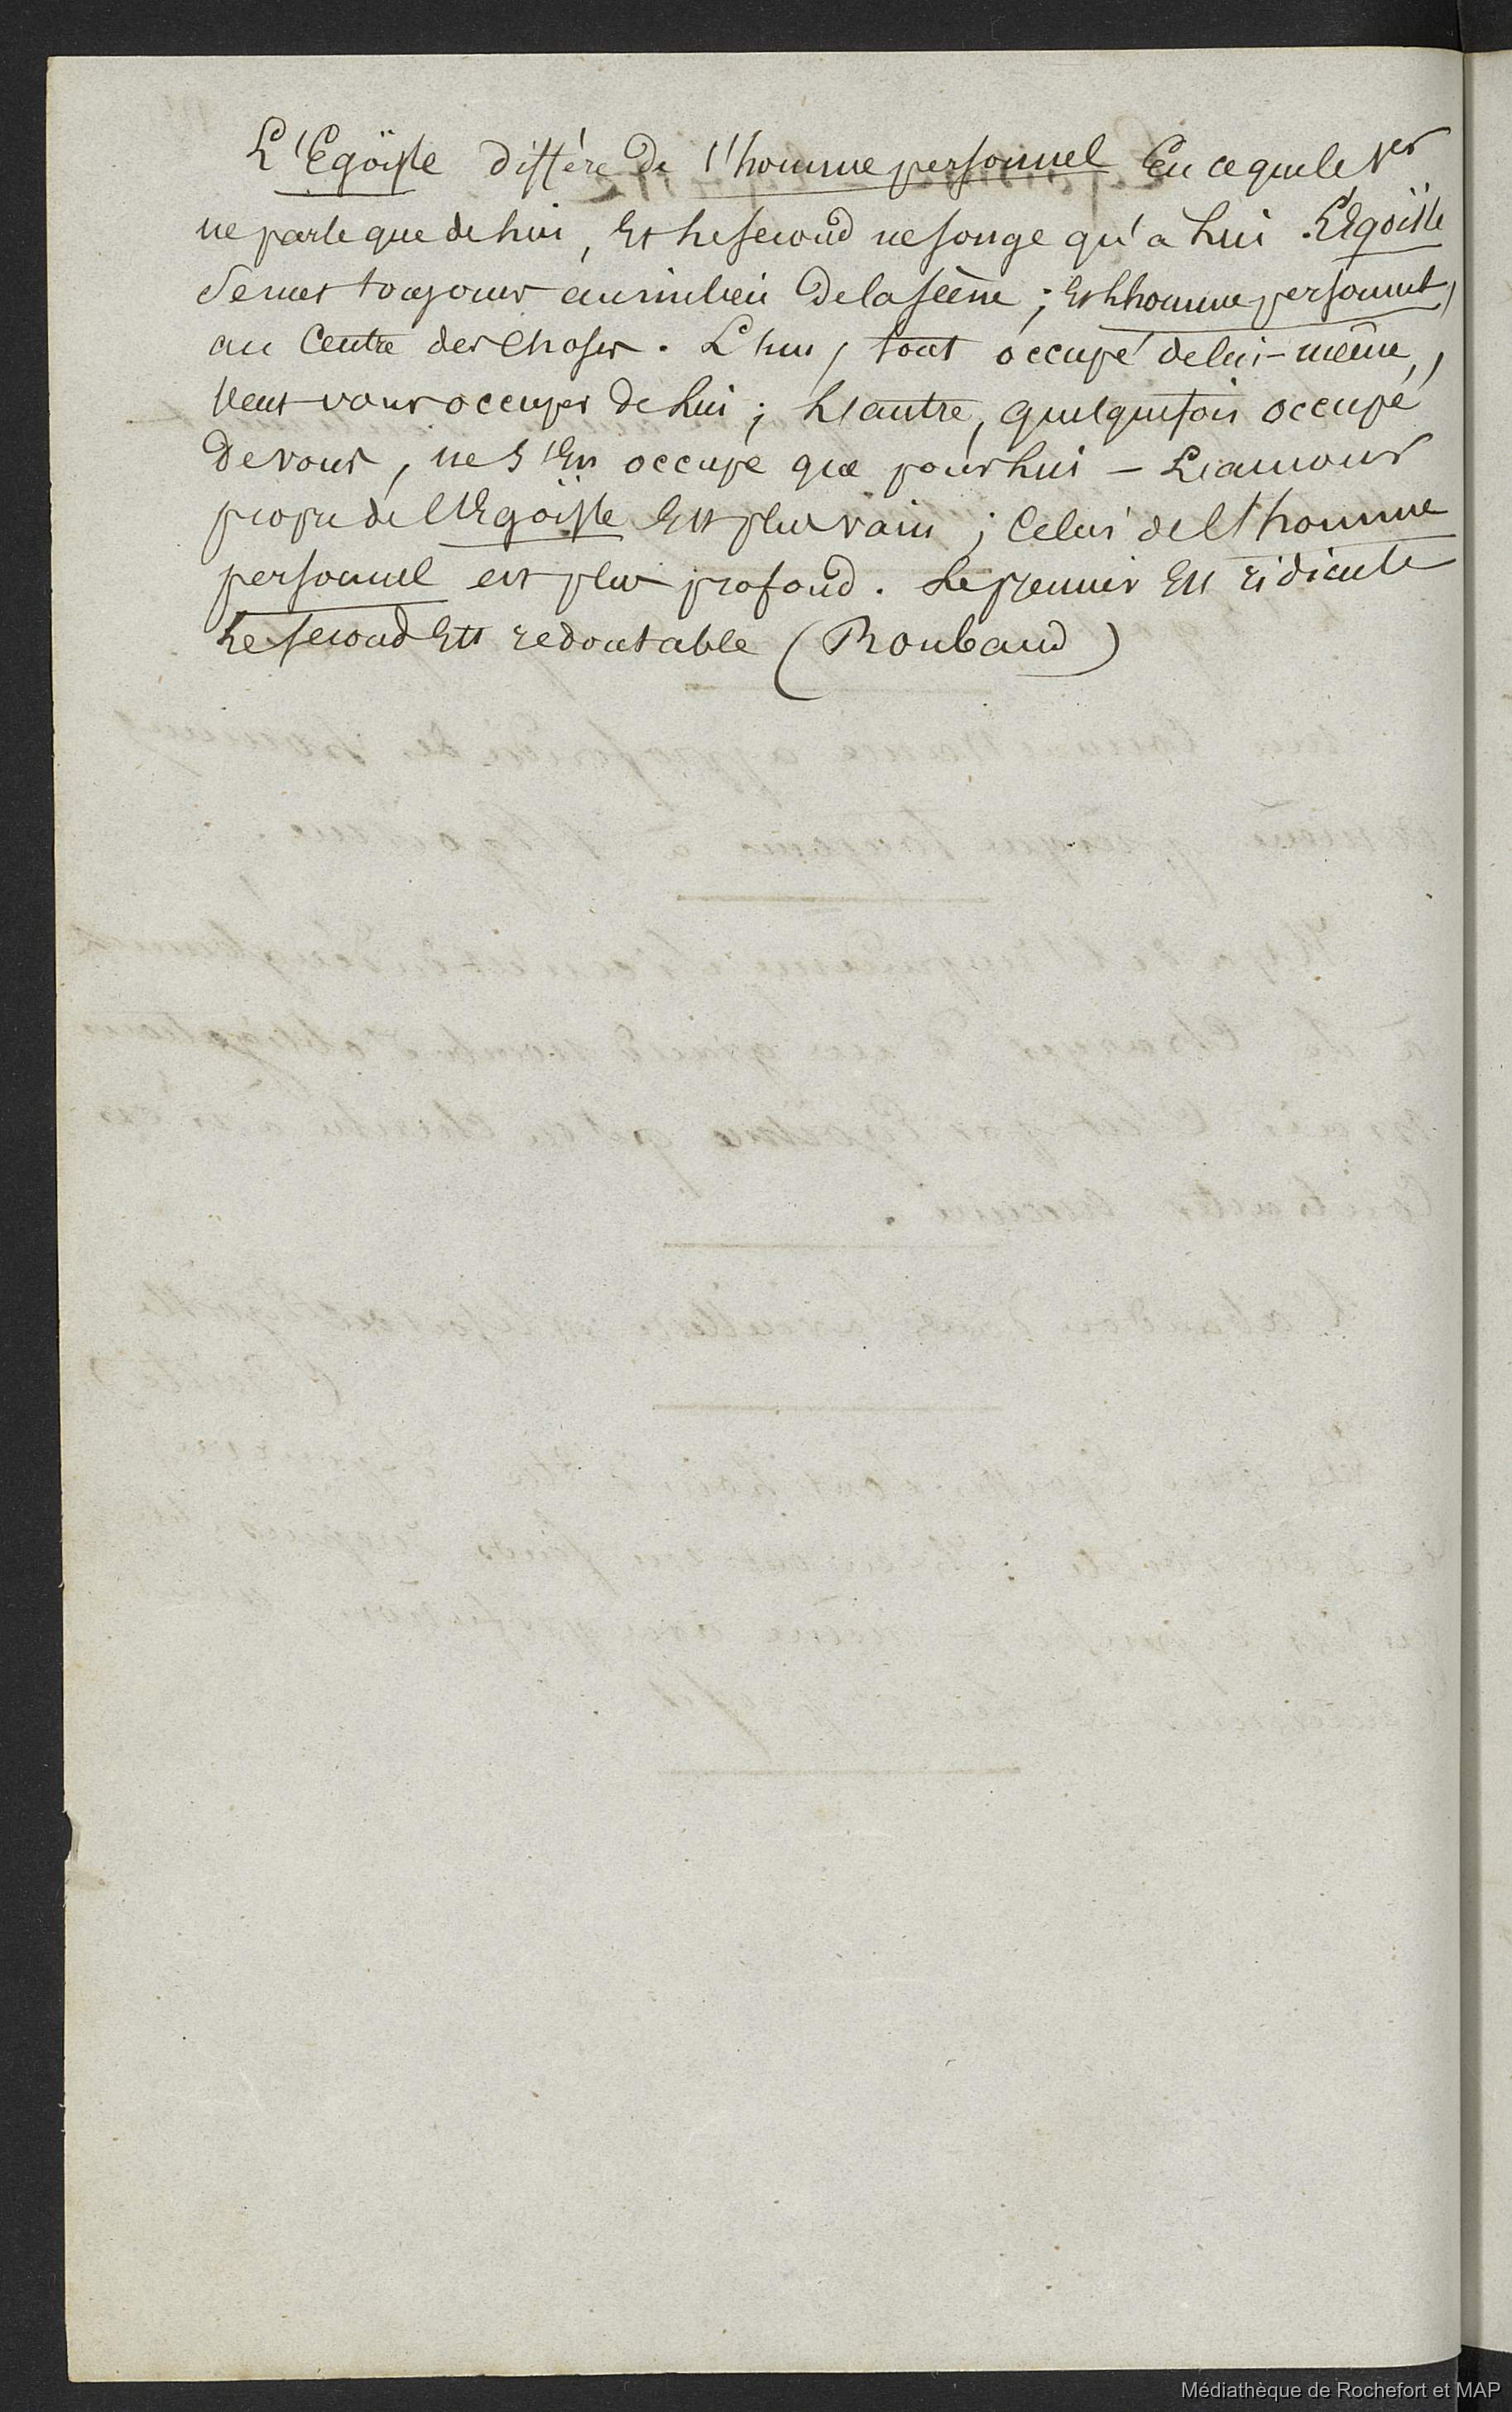 L'Egöiste différe de l'homme personnel En ce que le 1er
ne parle que de lui, Et le second ne songe qu'a Lui. L'Egoïste
Se met toujours au milieu de la scène ; Et l'homme personnel,
au Centre des Choses. L'un, tout occupé de lui-même,
veut vous occuper de Lui ; L'autre, quelquefois occupé
de vous, ne s'En occupe que pour lui – L'amour
propre de l'Egoïste Est plus vain ; Celui de l'homme
personnel est plus profond. Le premier Est ridicule
Le second Est redoutable (Roubaud)
Médiathèque de Rochefort et MAP